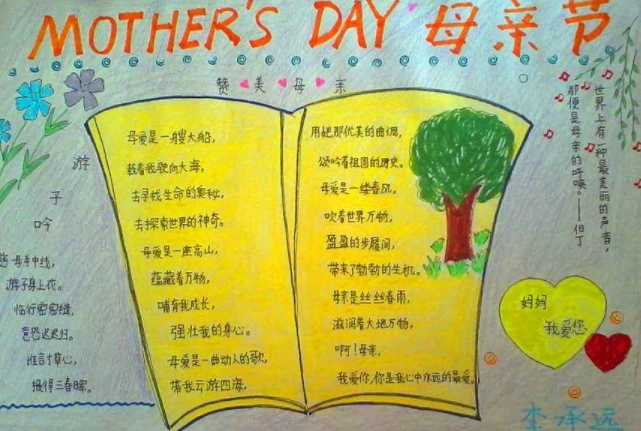 MOTHER'S DAY 母亲节
赞美母亲
母爱是一艘大船，
载着我驶向大海，
去寻找生命的奥秘，
去探索世界的神奇。
母爱是一座高山，
蕴藏着万物，
哺育我成长，
强壮我的身心。
母爱是一曲动人的歌，
带我云游四海，
用她那优美的曲调，
颂吟着祖国的历史。
母爱是一缕春风，
吹着世界万物，
盈盈的步履间，
带来了勃勃的生机。
母亲是丝丝春雨，
滋润着大地万物，
啊！母亲，
我爱你，你是我心中永远的最爱。
世界上有一种最美丽的声音，
那便是母亲的呼唤。——但丁
游子吟
慈母手中线，
游子身上衣。
临行密密缝，
意恐迟迟归。
谁言寸草心，
报得三春晖。
妈妈
我爱您
李承远